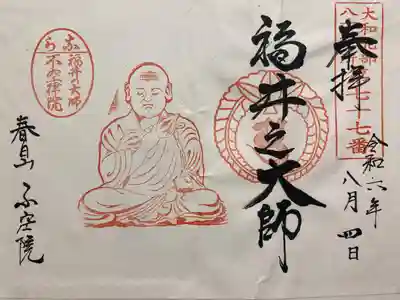 大和北部
七十七番
奉拝
令和六年
八月四日
福井之大師
なら
福井之大師
不空律院
春日 不空院